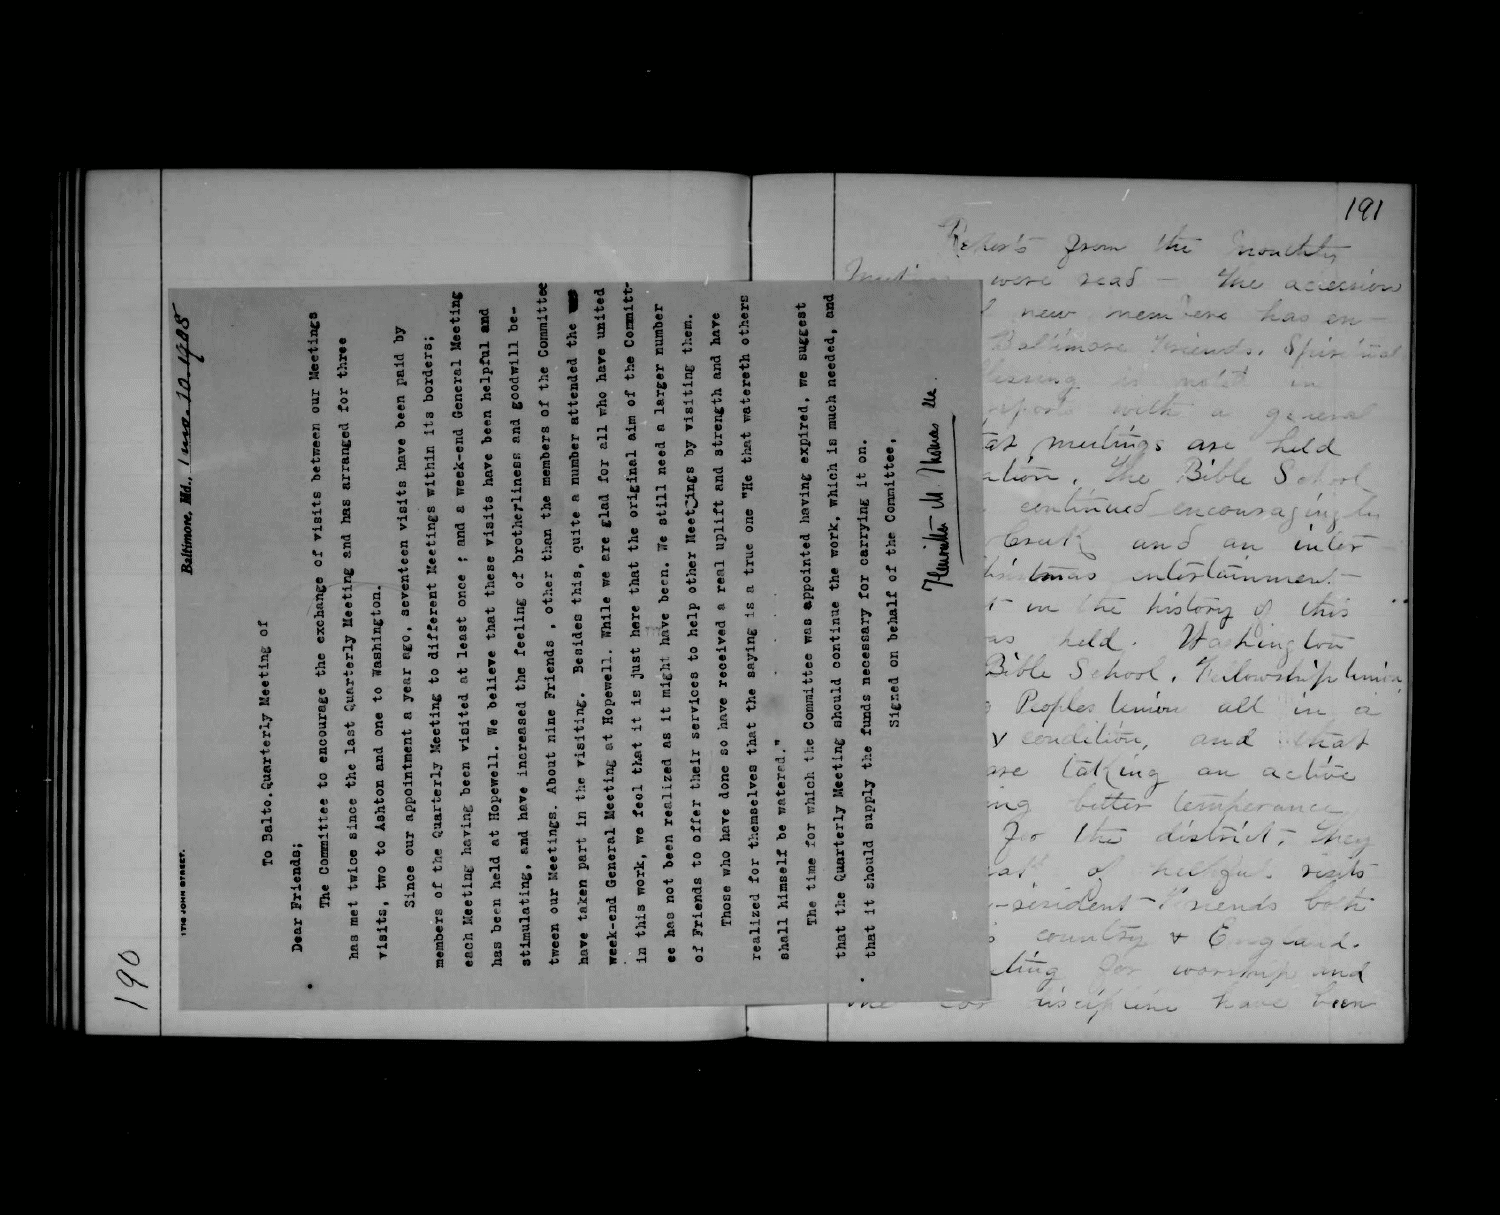 190
1718 JOHN STREET.
Baltimore, Md., 1 mo. 10. 1908
To Balto. Quarterly Meeting of
Dear Friends;
The Committee to encourage the exchange of visits between our Meetings
has met twice since the last Quarterly Meeting and has arranged for three
visits, two to Ashton and one to Washington.
Since our appointment a year ago, seventeen visits have been paid by
members of the Quarterly Meeting to different Meetings within its borders;
each Meeting having been visited at least once ; and a week-end General Meeting
has been held at Hopewell. We believe that these visits have been helpful and
stimulating, and have increased the feeling of brotherliness and goodwill be-
tween our Meetings. About nine Friends , other than the members of the Committee
have taken part in the visiting. Besides this, quite a number attended the
week-end General Meeting at Hopewell. While we are glad for all who have united
in this work, we feel that it is just here that the original aim of the Committ-
ee has not been realized as it might have been. We still need a larger number
of Friends to offer their services to help other Meetings by visiting them.
Those who have done so have received a real uplift and strength and have
realized for themselves that the saying is a true one "He that watereth others
shall himself be watered."
The time for which the Committee was appointed having expired, we suggest
that the Quarterly Meeting should continue the work, which is much needed, and
that it should supply the funds necessary for carrying it on.
Signed on behalf of the Committee,
Henrietta M. Thomas
191
from the Monthly
Meetings were read - The accession
new members has en-
Baltimore Friends. Spiritual
is noted in
with a general
meetings are held
The Bible School
continued encouragingly
and an inter-
entertainment-
in the history of this
held. Washington
Bible School, Fellowship Union,
Peoples Union all in a
condition, and that
are taking an active
better temperance
for the district, They
of helpful visits
Friends both
country & England.
for worship and
discipline have been